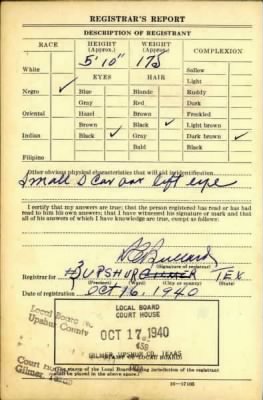 REGISTRAR'S REPORT
DESCRIPTION OF REGISTRANT
RACE HEIGHT (Approx.) WEIGHT (Approx.) COMPLEXION
White 5' 10" 175 Sallow
EYES HAIR Light
Negro ✓ Blue Blonde Ruddy
Gray Red Dark
Oriental Hazel Brown Freckled
Brown Black ✓ Light brown
Indian Black ✓ Gray Dark brown ✓
Bald Black
Filipino
Other obvious physical characteristics that will aid in identification
Small Scar over left eye
I certify that my answers are true; that the person registered has read or has had
read to him his own answers; that I have witnessed his signature or mark and that
all of his answers of which I have knowledge are true, except as follows:
(Signature of registrar)
Registrar for UPSHUR TEX
(Precinct) (Ward) (City or County) (State)
Date of registration Oct 16, 1940
LOCAL BOARD
COURT HOUSE
Local Board No.
Upshur County
OCT 17 1940
Court House
Gilmer, Texas
GILMER, UPSHUR CO. TEXAS
(STAMP OF LOCAL BOARD)
(The stamp of the Local Board having jurisdiction of the registrant
shall be placed in the above space.)